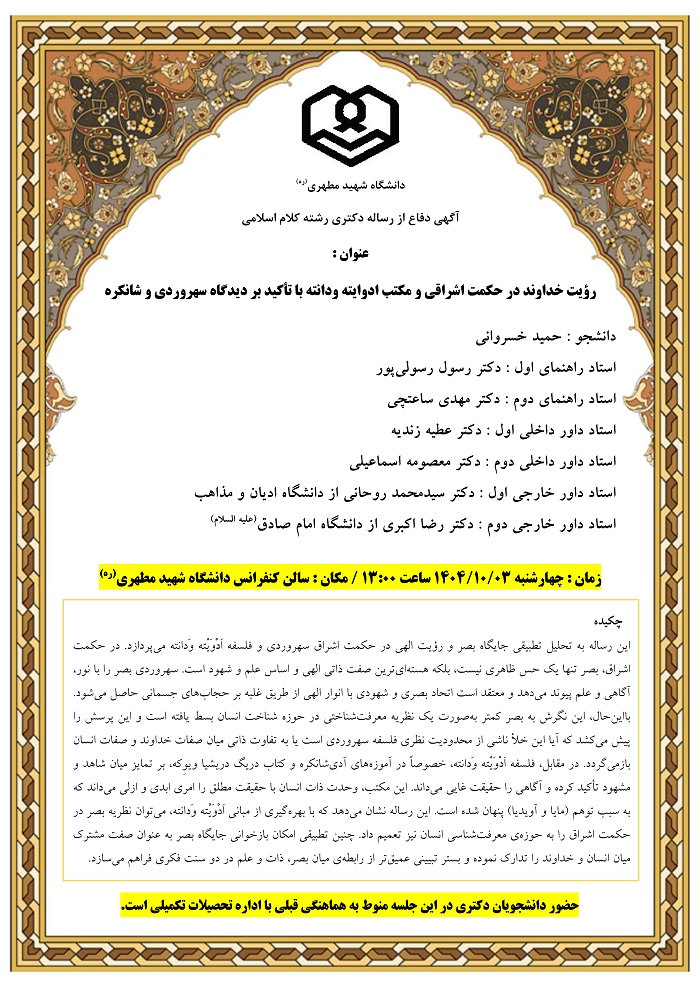 دانشگاه شهید مطهری(ره)
آگهی دفاع از رساله دکتری رشته کلام اسلامی
عنوان :
رؤیت خداوند در حکمت اشراقی و مکتب ادوایته ودانته با تأکید بر دیدگاه سهروردی و شانکره
دانشجو : حمید خسروانی
استاد راهنمای اول : دکتر رسول رسولی‌پور
استاد راهنمای دوم : دکتر مهدی ساعتچی
استاد داور داخلی اول : دکتر عطیه زندیه
استاد داور داخلی دوم : دکتر معصومه اسماعیلی
استاد داور خارجی اول : دکتر سیدمحمد روحانی از دانشگاه ادیان و مذاهب
استاد داور خارجی دوم : دکتر رضا اکبری از دانشگاه امام صادق(علیه السلام)
زمان : چهارشنبه ۱۴۰۴/۱۰/۰۳ ساعت ۱۳:۰۰ / مکان : سالن کنفرانس دانشگاه شهید مطهری(ره)
چکیده
این رساله به تحلیل تطبیقی جایگاه بصر و رؤیت الهی در حکمت اشراق سهروردی و فلسفه اَدْوَیْته وَدانته می‌پردازد. در حکمت
اشراق، بصر تنها یک حس ظاهری نیست، بلکه هسته‌ای‌ترین صفت ذاتی الهی و اساس علم و شهود است. سهروردی بصر را با نور،
آگاهی و علم پیوند می‌دهد و معتقد است اتحاد بصری و شهودی با انوار الهی از طریق غلبه بر حجاب‌های جسمانی حاصل می‌شود.
بااین‌حال، این نگرش به بصر کمتر به‌صورت یک نظریه معرفت‌شناختی در حوزه شناخت انسان بسط یافته است و این پرسش را
پیش می‌کشد که آیا این خلأ ناشی از محدودیت نظری فلسفه سهروردی است یا به تفاوت ذاتی میان صفات خداوند و صفات انسان
بازمی‌گردد. در مقابل، فلسفه اَدْوَیْته وَدانته، خصوصاً در آموزه‌های آدی‌شانکره و کتاب دریگ دریشیا ویوکه، بر تمایز میان شاهد و
مشهود تأکید کرده و آگاهی را حقیقت غایی می‌داند. این مکتب، وحدت ذات انسان با حقیقت مطلق را امری ابدی و ازلی می‌داند که
به سبب توهم (مایا و آویدیا) پنهان شده است. این رساله نشان می‌دهد که با بهره‌گیری از مبانی اَدْوَیْته وَدانته، می‌توان نظریه بصر در
حکمت اشراق را به حوزه‌ی معرفت‌شناسی انسان نیز تعمیم داد. چنین تطبیقی امکان بازخوانی جایگاه بصر به عنوان صفت مشترک
میان انسان و خداوند را تدارک نموده و بستر تبیینی عمیق‌تر از رابطه‌ی میان بصر، ذات و علم در دو سنت فکری فراهم می‌سازد.
حضور دانشجویان دکتری در این جلسه منوط به هماهنگی قبلی با اداره تحصیلات تکمیلی است.